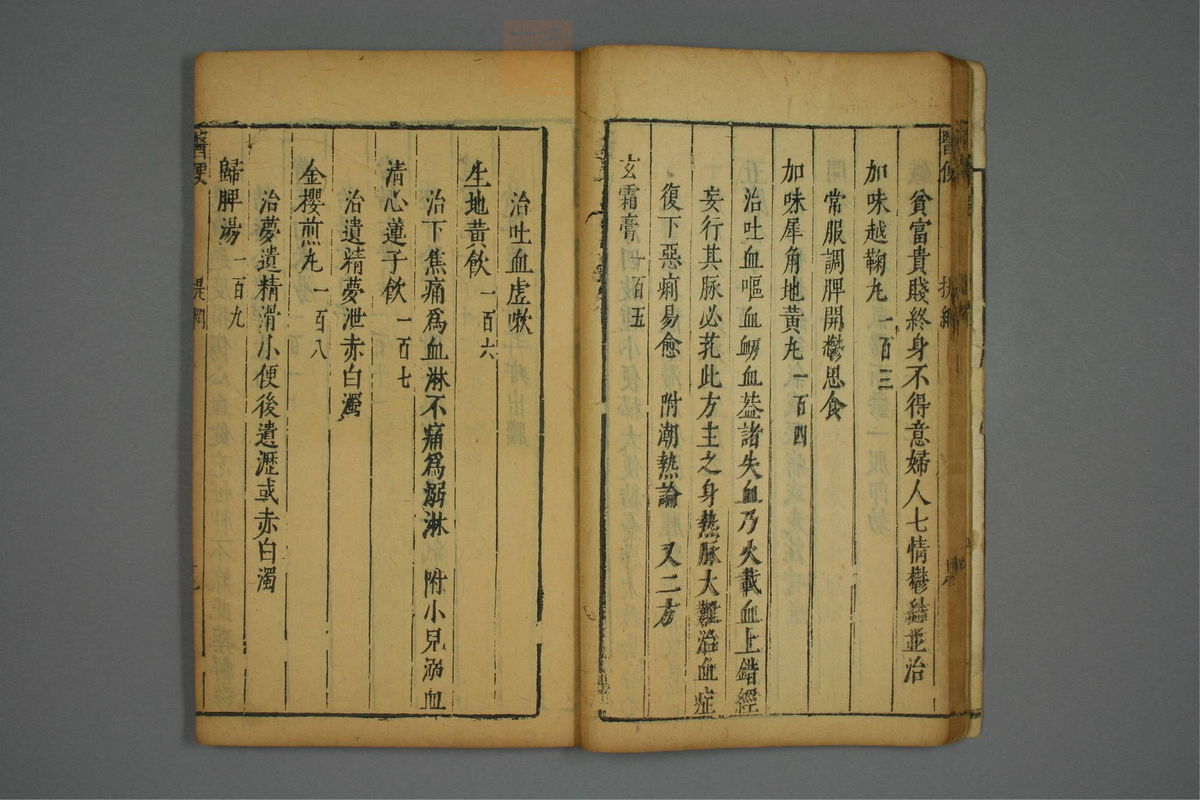 醫便
提綱
貧富貴賤終身不得意婦人七情鬱結並治
加味越鞠丸一百三
常服調脾開鬱思食
加味犀角地黃丸一百四
治吐血嘔血衂血葢諸失血乃火載血上錯經
妄行其脉必芤此方主之身熱脉大難治血症
復下惡痢易愈 附潮熱論 又二方
玄霜膏一百五
治吐血虛嗽
生地黃飲一百六
治下焦痛爲血淋不痛爲溺淋 附小兒溺血
清心蓮子飲一百七
治遺精夢泄赤白濁
金櫻煎丸一百八
治夢遺精滑小便後遺瀝或赤白濁
歸脾湯一百九
醫便
提綱